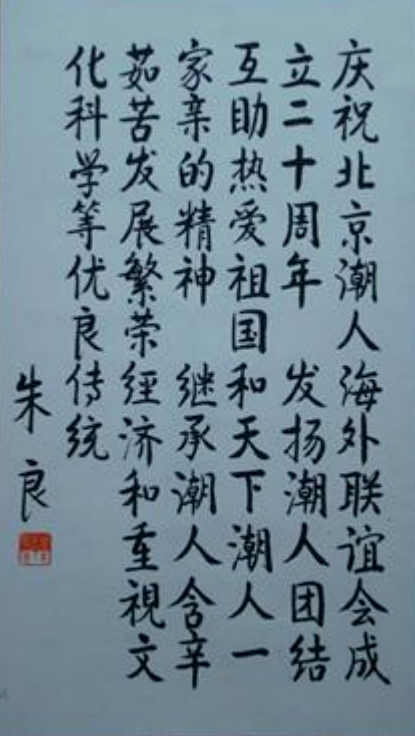 庆祝北京潮人海外联谊会成
立二十周年 发扬潮人团结
互助热爱祖国和天下潮人一
家亲的精神 继承潮人含辛
茹苦发展繁荣經济和重視文
化科学等优良传统
朱良